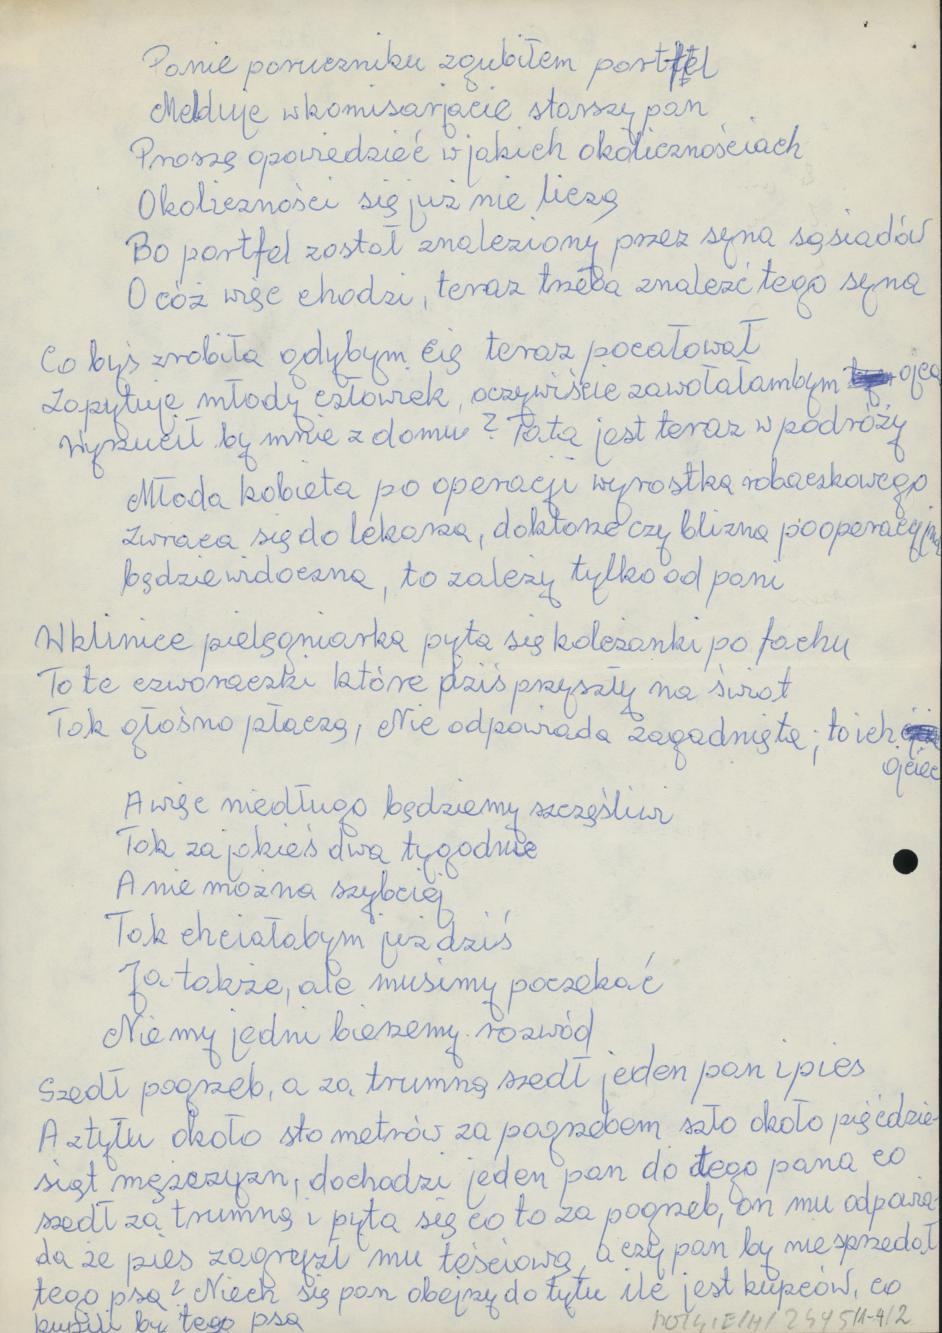 Panie poruczniku zgubiłem portfel
Melduje w komisarjacie starszy pan
Proszę opowiedzieć w jakich okolicznościach
Okoliczności się już nie liczą
Bo portfel został znaleziony przez syna sąsiadów
O cóż więc chodzi, teraz trzeba znaleźć tego syna
Co byś zrobiła gdybym cię teraz pocałował
Zapytuje młody człowiek, oczywiście zawołałambym ojca
Wyrzucił by mnie z domu? Tata jest teraz w podróży
Młoda kobieta po operacji wyrostka robaczkowego
Zwraca się do lekarza, doktorze czy blizna pooperacyjna
będzie widoczna, to zależy tylko od pani
W klinice pielęgniarka pyta się koleżanki po fachu
To te czworaczki które dziś przyszły na świat
Tak głośno płaczą, Nie odpowiada zagadnięta, to ich
ojciec
A więc niedługo będziemy szczęśliwi
Tak za jakieś dwa tygodnie
A nie można szybciej
Tak chciałabym już dziś
Ja także, ale musimy poczekać
Nie my jedni bierzemy rozwód
Szedł pogrzeb, a za trumną szedł jeden pan i pies
A z tyłu około sto metrów za pogrzebem szło około pięćdzie-
siąt mężczyzn, dochodzi jeden pan do tego pana co
szedł za trumną i pyta się co to za pogrzeb, on mu odpowia-
da że pies zagryzł mu teściową, a czy pan by nie sprzedał
tego psa? Niech się pan obejrzy do tyłu ile jest kupców, co
kupili by tego psa